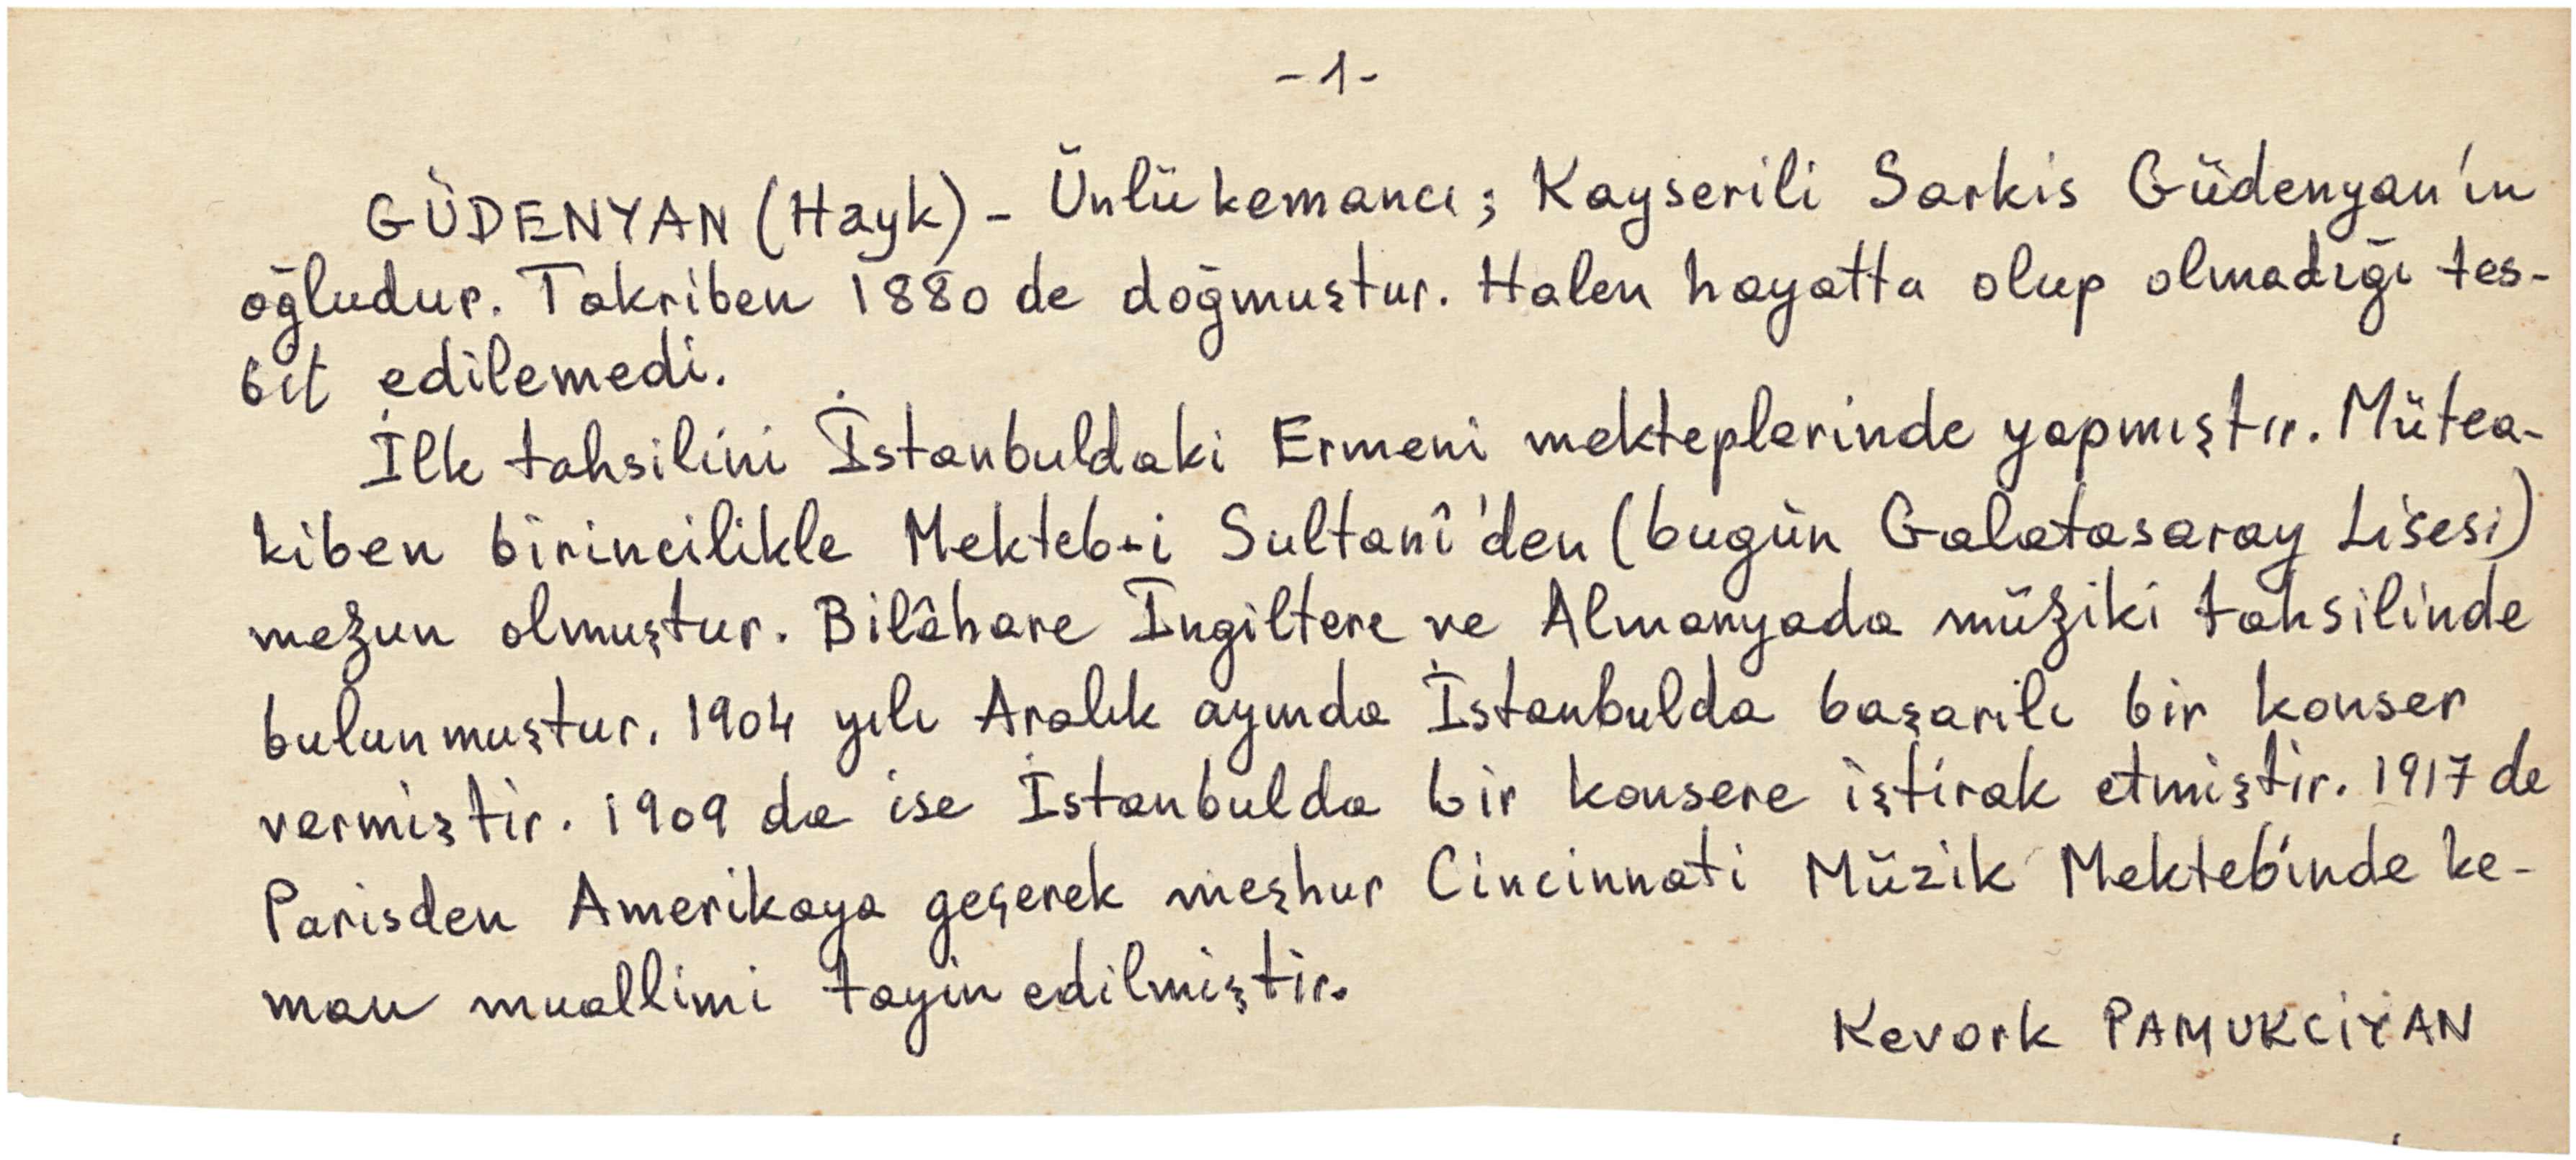 -1-
GÜDENYAN (Hayk) - Ünlü kemancı; Kayserili Sarkis Güdenyan'ın
oğludur. Takriben 1880 de doğmuştur. Halen hayatta olup olmadığı tes-
bit edilemedi.
İlk tahsilini İstanbuldaki Ermeni mekteplerinde yapmıştır. Mütea-
kiben birincilikle Mekteb-i Sultanî'den (bugün Galatasaray Lisesi)
mezun olmuştur. Bilâhare İngiltere ve Almanyada müziki tahsilinde
bulunmuştur. 1904 yılı Aralık ayında İstanbulda başarılı bir konser
vermiştir. 1909 da ise İstanbulda bir konsere iştirak etmiştir. 1917 de
Parisden Amerikaya geçerek meşhur Cincinnati Müzik Mektebinde ke-
man muallimi tayin edilmiştir.
Kevork PAMUKCİYAN